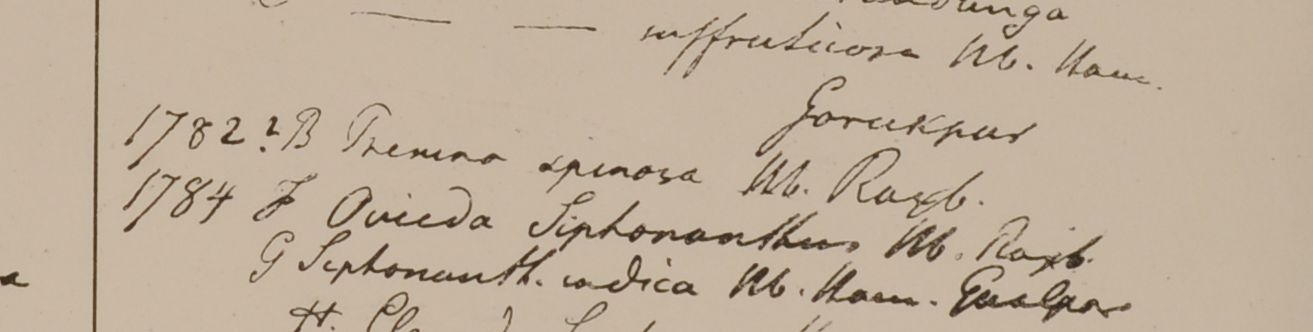 suffruticosa Hb. Ham.
Gorukpur
1782? B Premna spinosa Hb. Roxb.
1784 F Ovieda Siphonanthus Hb. Roxb.
G Siphonanth. indica Hb. Ham. Gualpar
H.